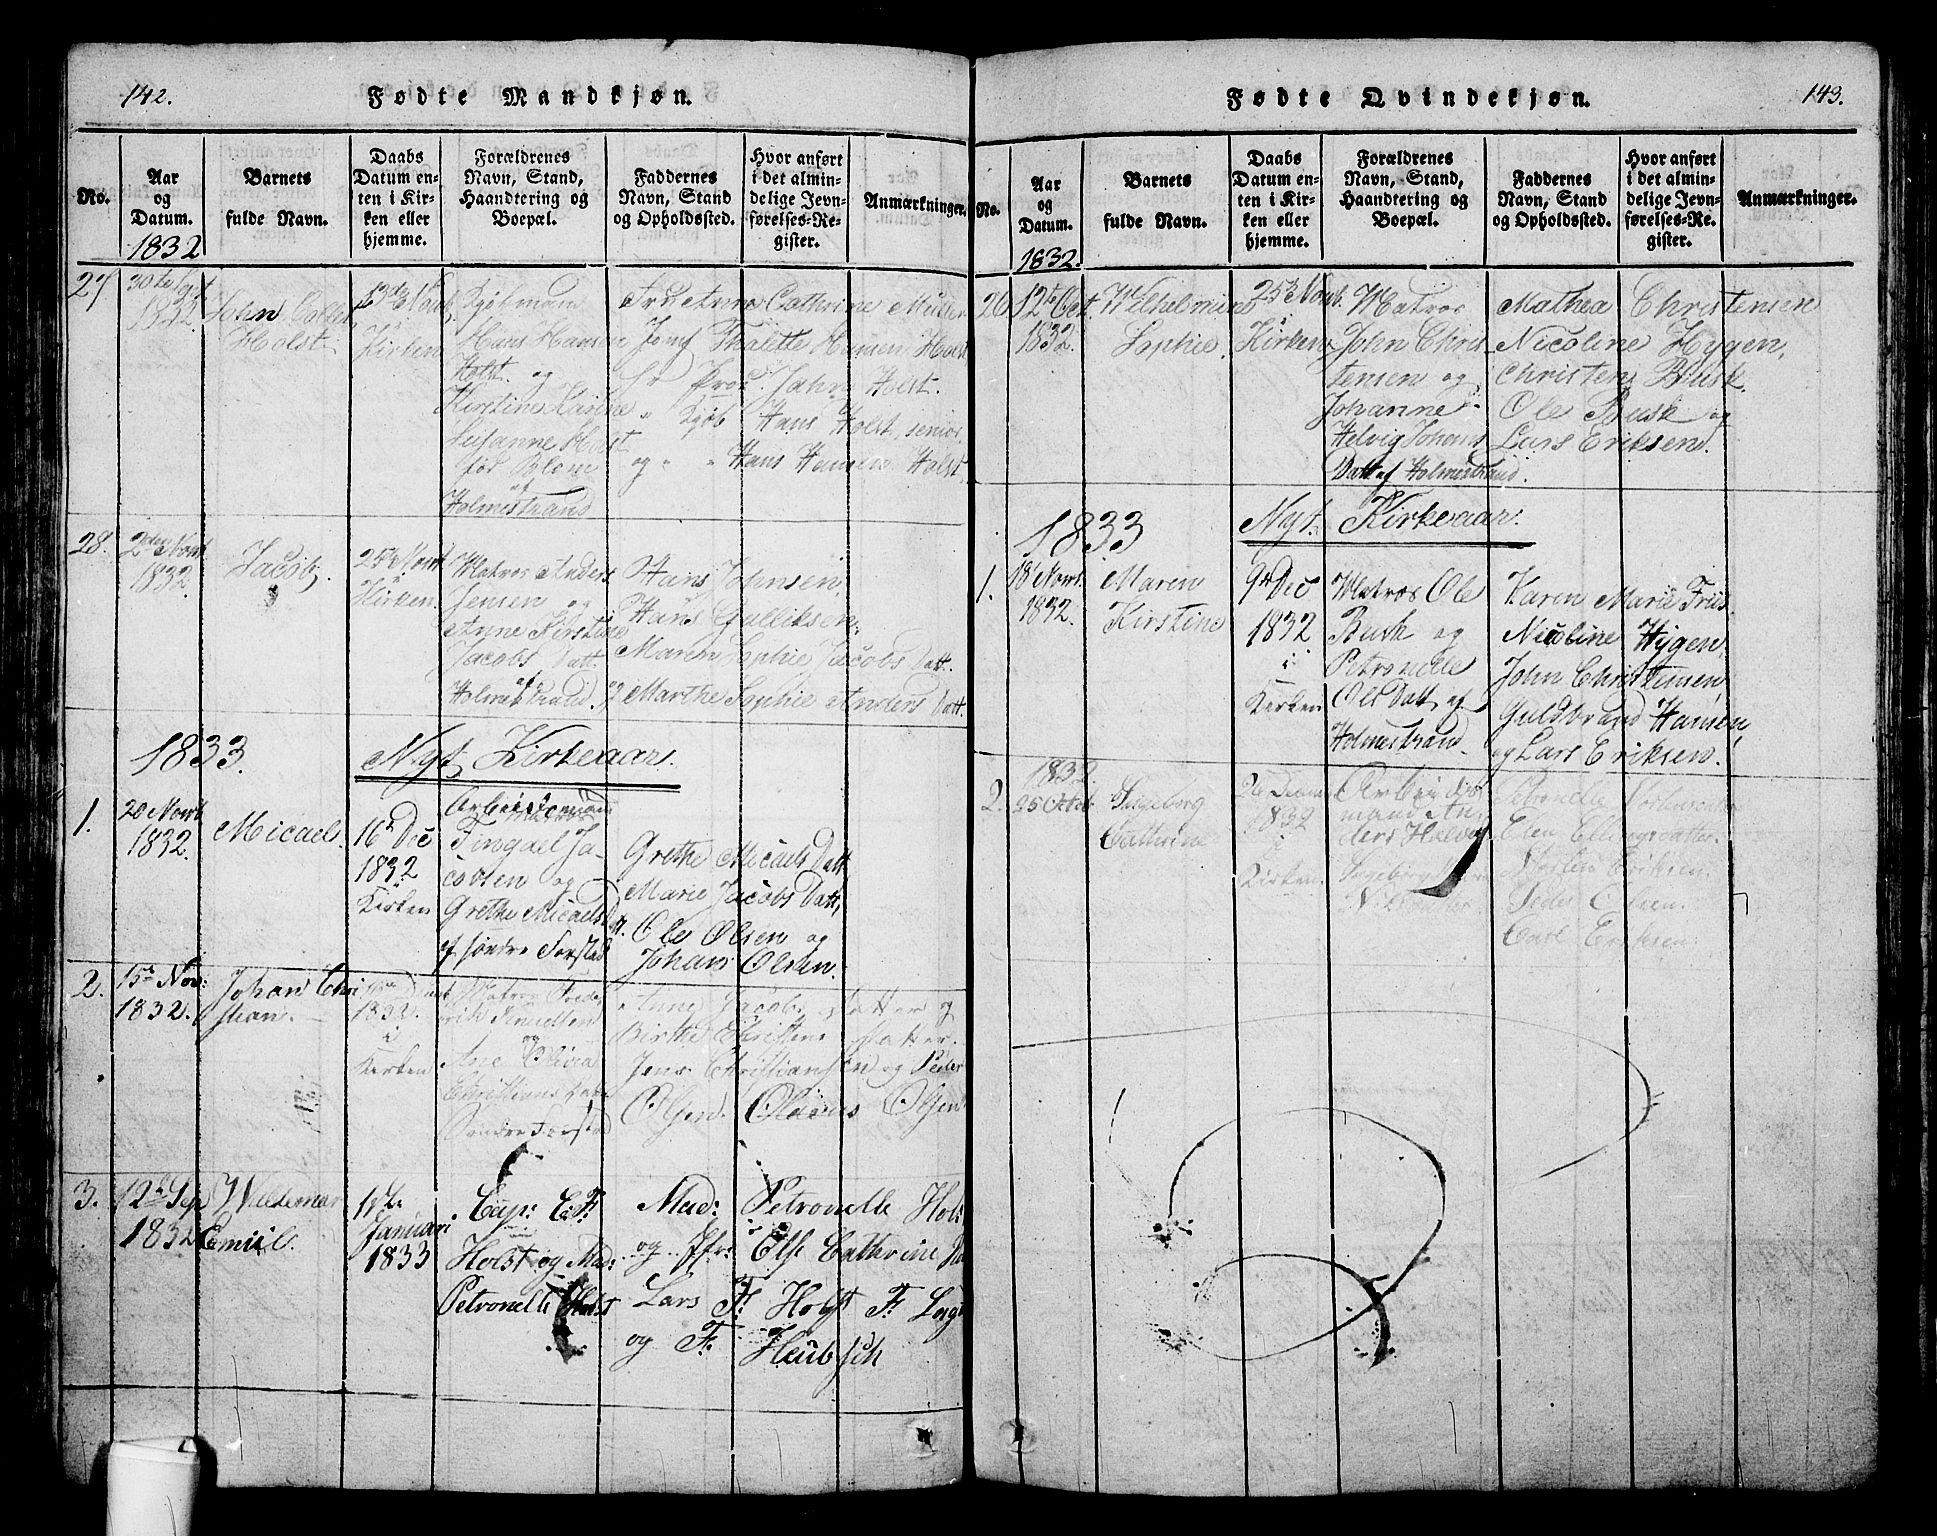 142.
Fødte Mandkjøn.
No.
Aar
og
Datum.
1832
Barnets
fulde Navn.
Daabs
Datum en-
ten i Kir-
ken eller
hjemme.
Forældrenes
Navn, Stand,
Haandtering og
Boepæl.
Faddernes
Navn, Stand
og Opholdssted.
Hvor anført
i det almin-
delige Jevn-
førelses-Re-
gister.
Anmærkninger.
27
30te Sept
1832
John
Holst
Novb.
i
Kirken
Kjøbmand
Hans Hansen
Holst og
Kirstine Karine
Susanne Holst
fød Blom
af
Holmestrand
Fru Anne Cathrine Müller
Jomf Thalette Hansen Holst
Hr Jahn Holst.
" Kjøb Hans Holst, senior
og " " Hans Hansen Holst.
28.
2den Novb
1832.
Jacob.
25de Novb
i
Kirken.
Matros Anders
Jensen og
Anne Kirstine
Jacobs Datt.
af
Holmestrand.
Hans Johnsen,
Hans Gulliksen,
Maren Sophie Jacobs Datt.
og Marthe Sophie Anders Datt.
1833.
Nyt Kirkeaar.
1.
20 Novb
1832.
Micael.
16de Dec
1832
i
Kirken
Arbeidsmand
Fingael Ja-
cobsen og
Grethe Micaels Datt.
af søndre Forstad
Grethe Micaels Datt
Marie Jacobs Datt,
Ole Olsen og
Johans Olsen.
2.
15de Nov:
1832.
Johan Chri
stian.
1832.
i
Kirken
Matros Frede
rik Knudsen
og
Ane Olivia
Christians Datt
Søndre Forstad
Anne Jacobs Datter og
Birthe Christens Datter.
Jens Christiansen og Peder
Olsen. Olaves Olsen
3.
12te Sep
1832
Wildemar
Emiil.
1ste
Januari
1833
Cap: E: F:
Holst og Mad:
Petronelle Holst
Mad: Petronelle Holst
og Jfr: Else Cathrine
Lars F: Holst F:
og F: Heubsch
143.
Fødte Qvindekjøn.
No.
Aar
og
Datum.
1832.
Barnets
fulde Navn.
Daabs
Datum en-
ten i Kir-
ken eller
hjemme.
Forældrenes
Navn, Stand,
Haandtering og
Boepæl.
Faddernes
Navn, Stand
og Opholdssted.
Hvor anført
i det almin-
delige Jevn-
førelses-Re-
gister.
Anmærkninger.
26
12te Oct.
1832.
Wilhelmine
Sophie.
25de Novb.
i
Kirken
Matros
John Chris-
tensen og
Johanne
Helvig Johans
Datt af Holmestrand.
Mathea Christensen
Nicoline Hygen,
Christen Busk,
Ole Busk og
Lars Eriksen.
1833
Nyt Kirkeaar.
1.
18 Novb.
1832.
Maren
Kirstine
9de Dec
1832
i
Kirken
Matros Ole
Busk og
Petronelle
Ols Datt af
Holmestrand.
Karen Marie Friis
Nicoline Hygen,
John Christensen,
Guldbrand Hansen,
og Lars Eriksen.
2.
1832.
25 Octob
Ingeborg
Cathrine
26 Decem
1832
i
Kirken.
Arbeids
mand An-
ders
Ingeborg
Petronelle
Elen Ellingsdatter.
Eriksen.
Peder Olsen.
Carl Eriksen.